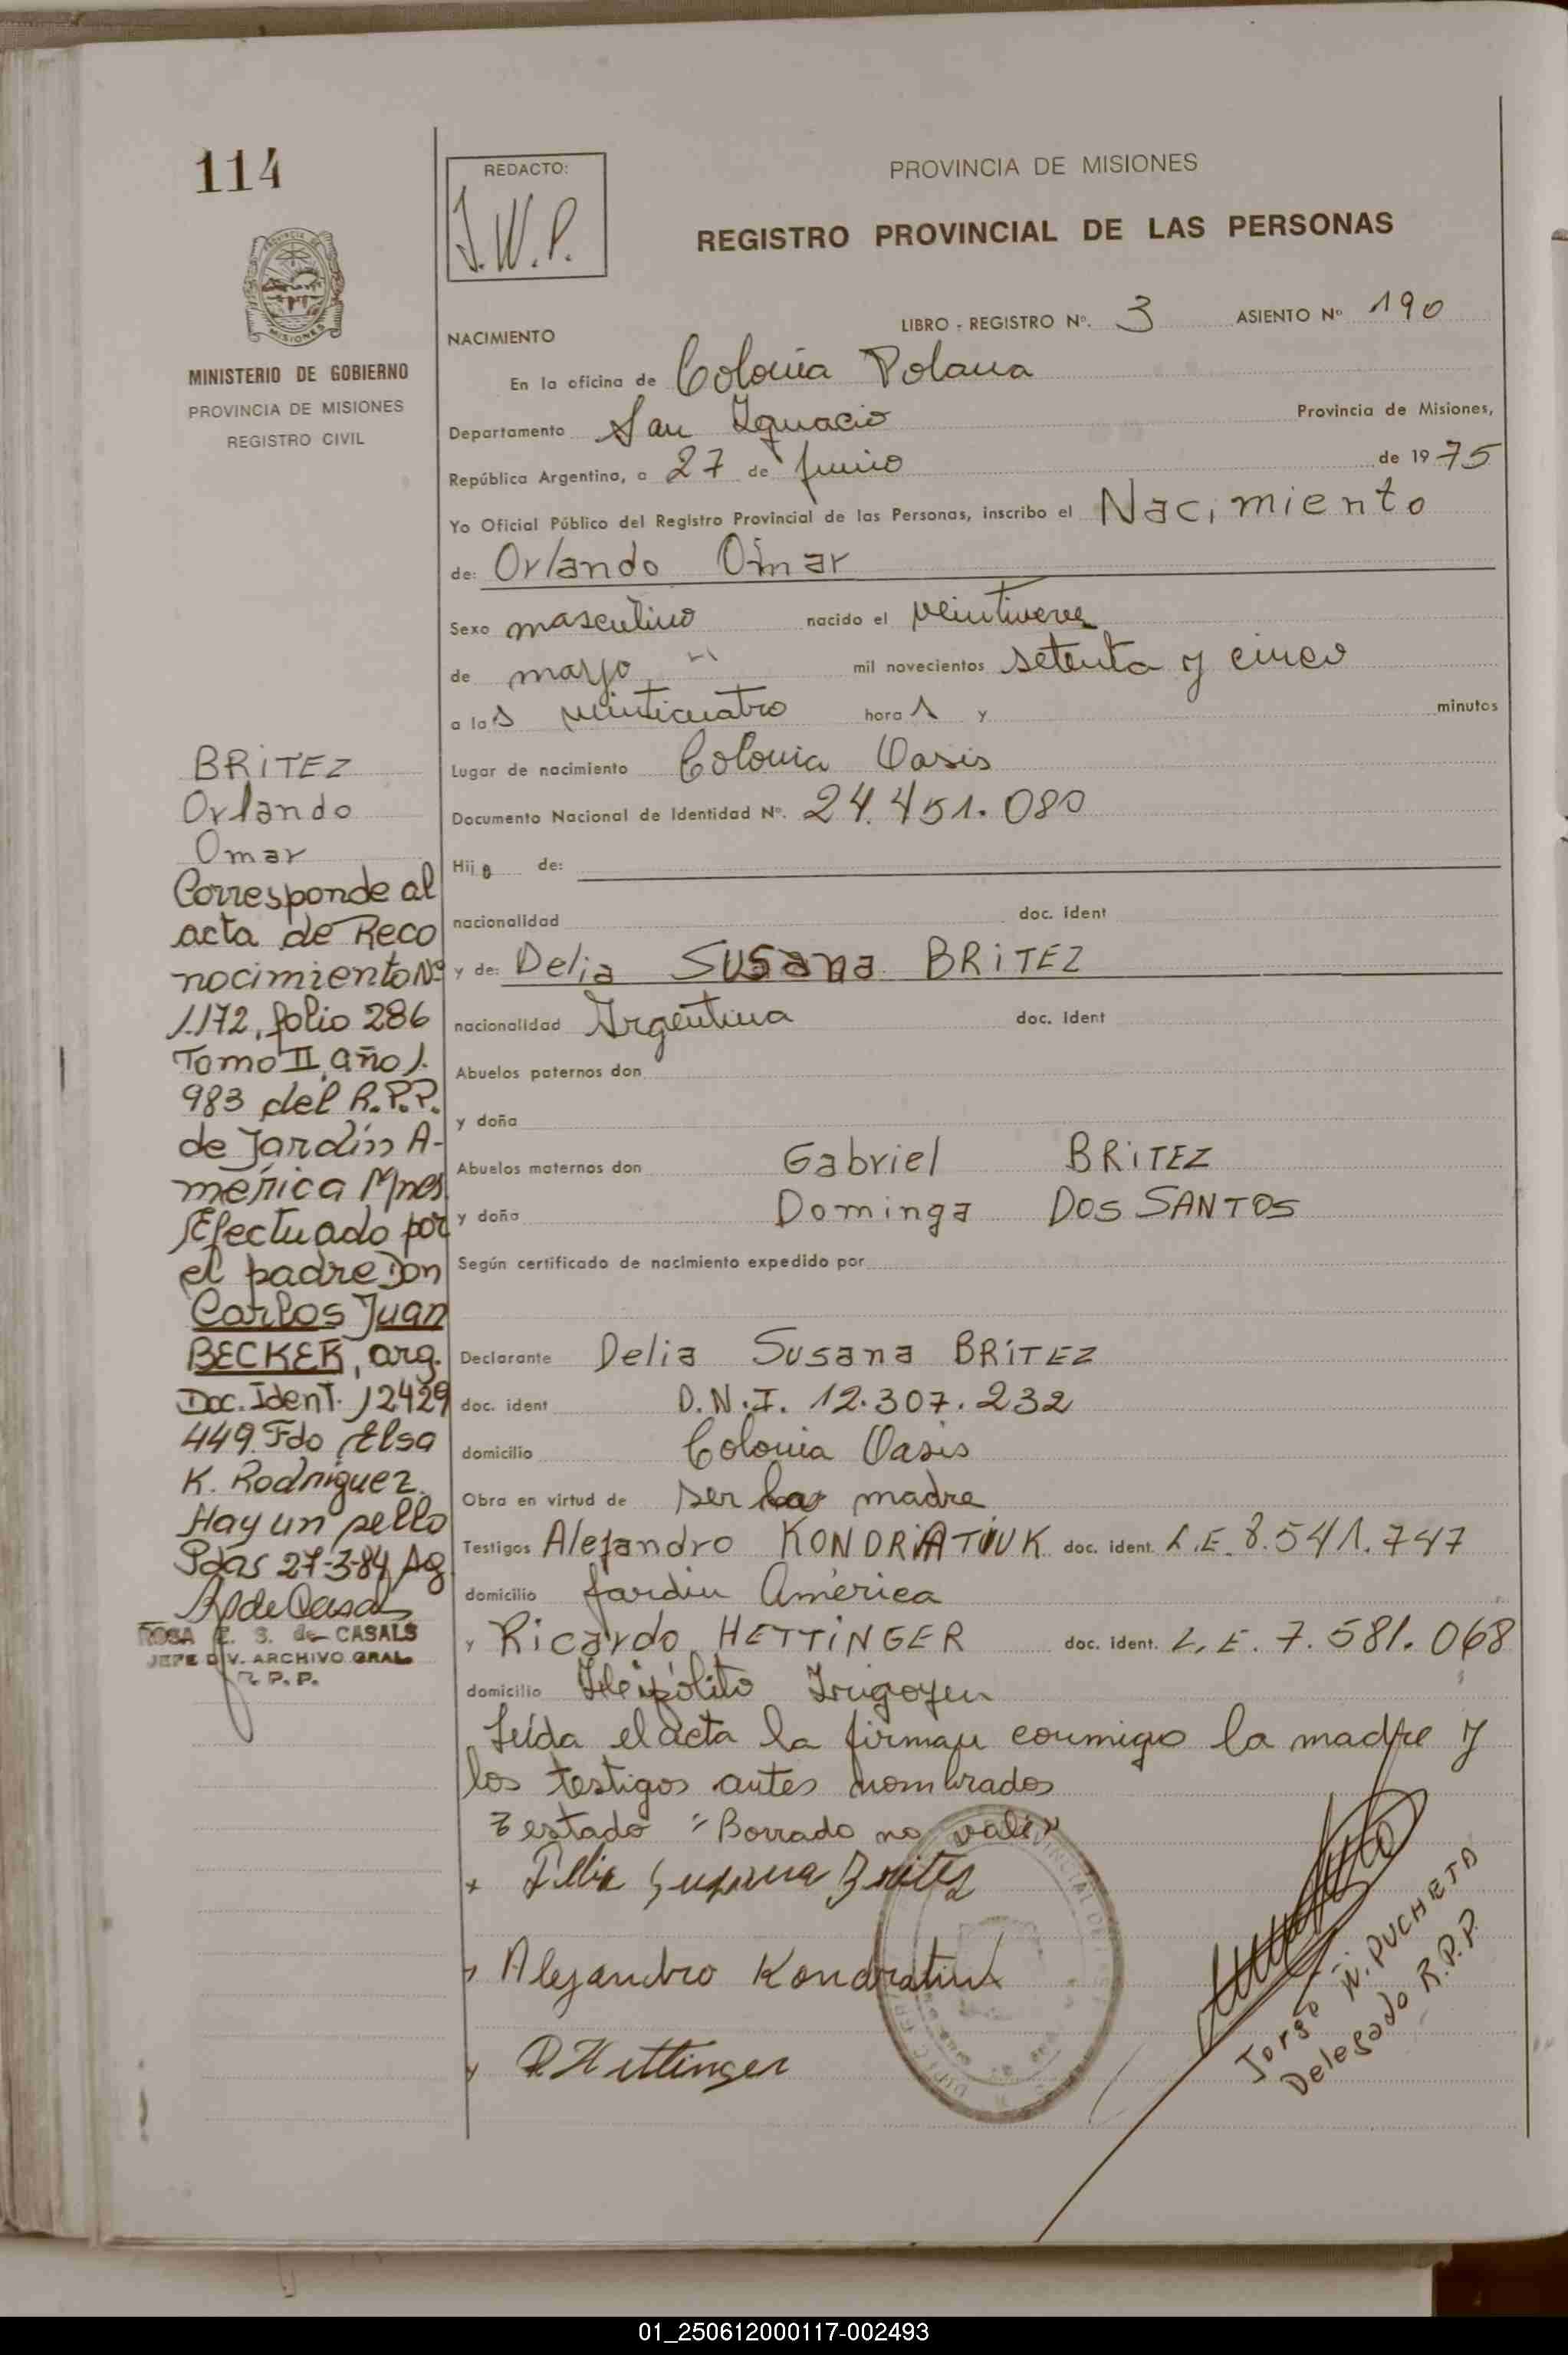 114
REDACTO:
J.W.P.
PROVINCIA DE MISIONES
REGISTRO PROVINCIAL DE LAS PERSONAS
MINISTERIO DE GOBIERNO
PROVINCIA DE MISIONES
REGISTRO CIVIL
LIBRO - REGISTRO Nº. 3 ASIENTO Nº 190
NACIMIENTO
En la oficina de Colonia Polana
Departamento San Ignacio Provincia de Misiones,
República Argentina, a 27 de Junio de 1975
Yo Oficial Público del Registro Provincial de las Personas, inscribo el Nacimiento
de: Orlando Omar
Sexo masculino nacido el veintinueve
de mayo mil novecientos setenta y cinco
a las veinticuatro horas y minutos
Lugar de nacimiento Colonia Oasis
Documento Nacional de Identidad Nº. 24.451.080
Hijo de:
nacionalidad doc. ident
y de: Delia Susana BRITEZ
nacionalidad Argentina doc. ident
Abuelos paternos don
y doña
Abuelos maternos don Gabriel BRITEZ
y doña Dominga DOS SANTOS
Según certificado de nacimiento expedido por
Declarante Delia Susana BRITEZ
doc. ident D.N.I. 12.307.232
domicilio Colonia Oasis
Obra en virtud de ser la madre
Testigos Alejandro KONDRATIUK doc. ident. L.E. 8.541.747
domicilio Jardin América
y Ricardo HETTINGER doc. ident. L.E. 7.581.068
domicilio Hipólito Irigoyen
Leída el acta la firman conmigo la madre y
los testigos antes nombrados
Testado "Borrado no vale"
Delia Susana Britez
Alejandro Kondratiuk
R Hettinger
Jorge W. PUCHETA
Delegado R.P.P.
BRITEZ
Orlando
Omar
Corresponde al
acta de Reco
nocimiento Nº
1.172, folio 286
Tomo II, año 1.
983 del R.P.P.
de Jardín A-
mérica Mnes.
Efectuado por
el padre Don
Carlos Juan
BECKER, arg.
Doc. Ident. 12429
449. Fdo Elsa
K. Rodriguez.
Hay un sello
Pdas 27-3-84 Ag
ROSA E. S. de CASALS
JEFE DIV. ARCHIVO GRAL.
R. P. P.
01_250612000117-002493